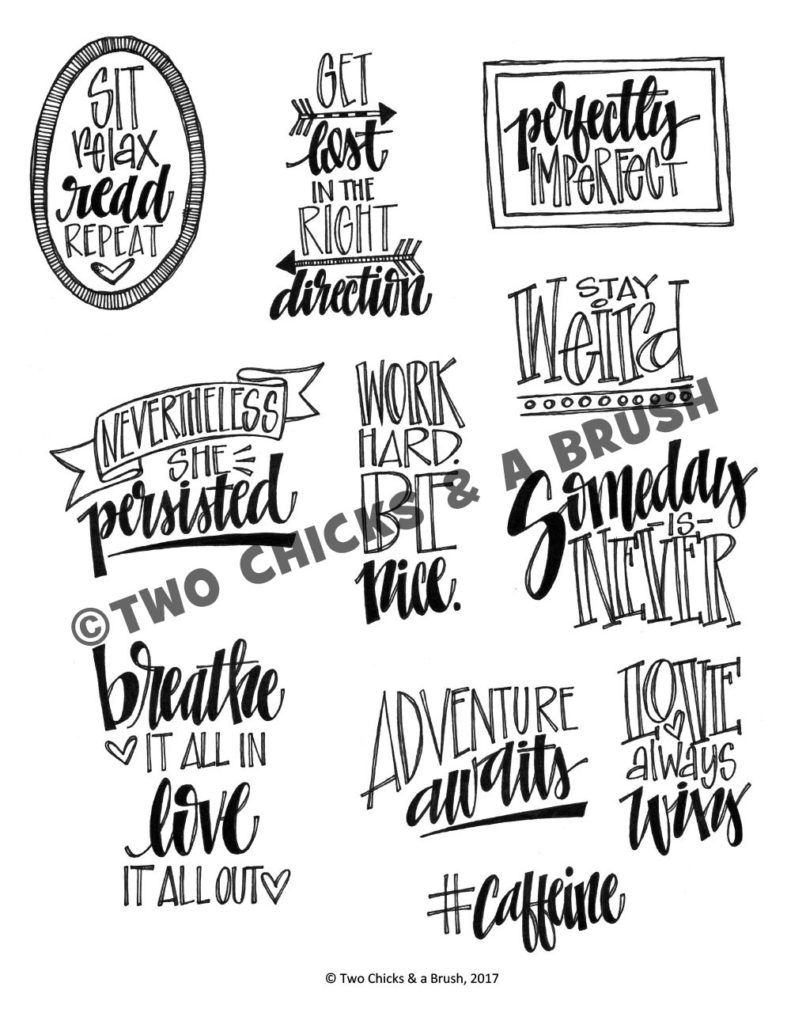 SIT
relax
read
REPEAT
GET
lost
IN THE
RIGHT
direction
perfectly
IMPERFECT
STAY
Weird
NEVERTHELESS
SHE
persisted
WORK
HARD.
BE
nice.
Someday
-IS-
NEVER
©TWO CHICKS & A BRUSH
breathe
IT ALL IN
love
IT ALL OUT
ADVENTURE
awaits
LOVE
always
wins
#caffeine
© Two Chicks & a Brush, 2017